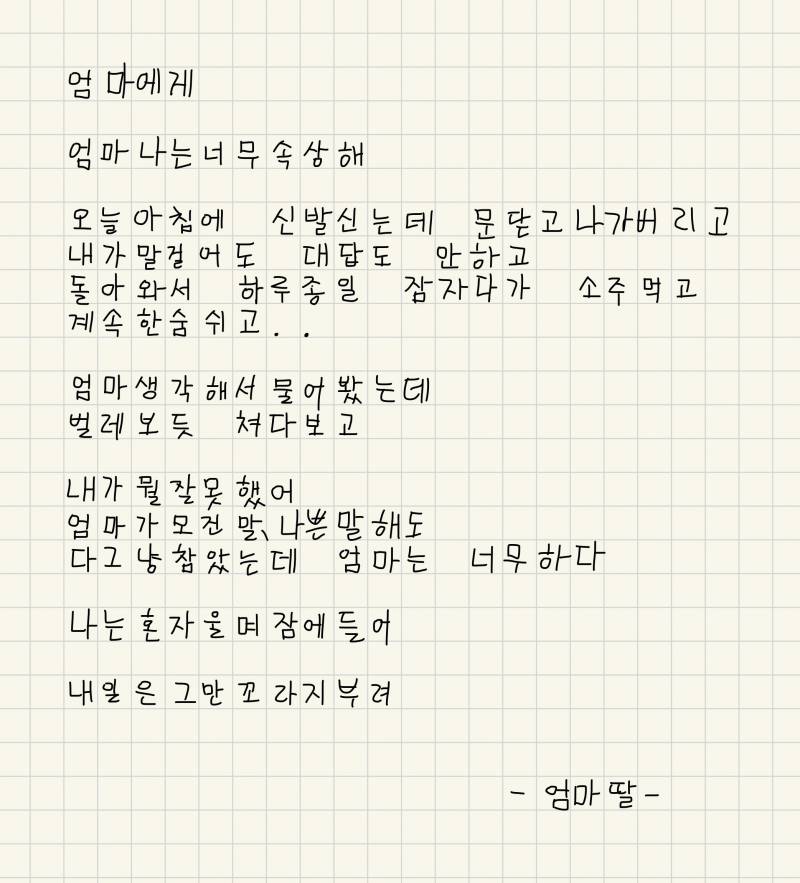 엄마에게
엄마 나는 너무 속상해
오늘 아침에 신발신는데 문닫고 나가버리고
내가 말걸어도 대답도 안하고
돌아와서 하루종일 잠자다가 소주먹고
계속 한숨쉬고..
엄마생각해서 물어봤는데
벌레보듯 쳐다보고
내가 뭘 잘못했어
엄마가 모진 말, 나쁜말해도
다그냥참았는데 엄마는 너무하다
나는 혼자울며 잠에들어
내일은 그만 꼬라지부려
- 엄마딸 -